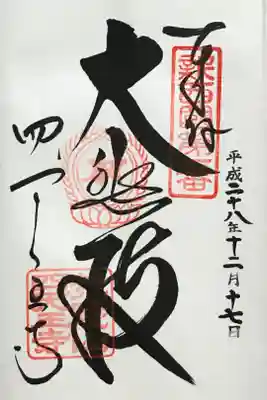 奉拝
平成二十八年十二月十七日
大悲殿
四天王寺